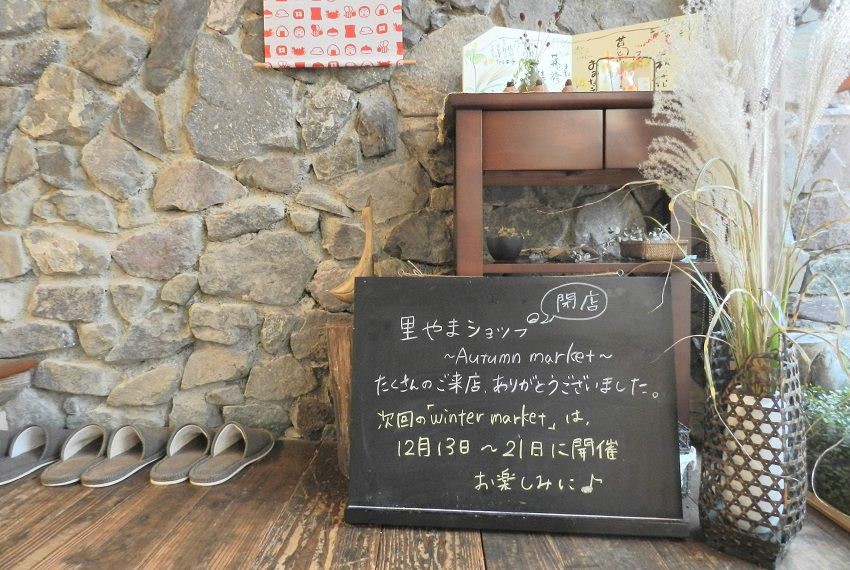 閉店
里やまショップ
~Autumn market~
たくさんのご来店、ありがとうございました。
次回の「winter market」は、
12月13日～21日に開催
お楽しみに♪